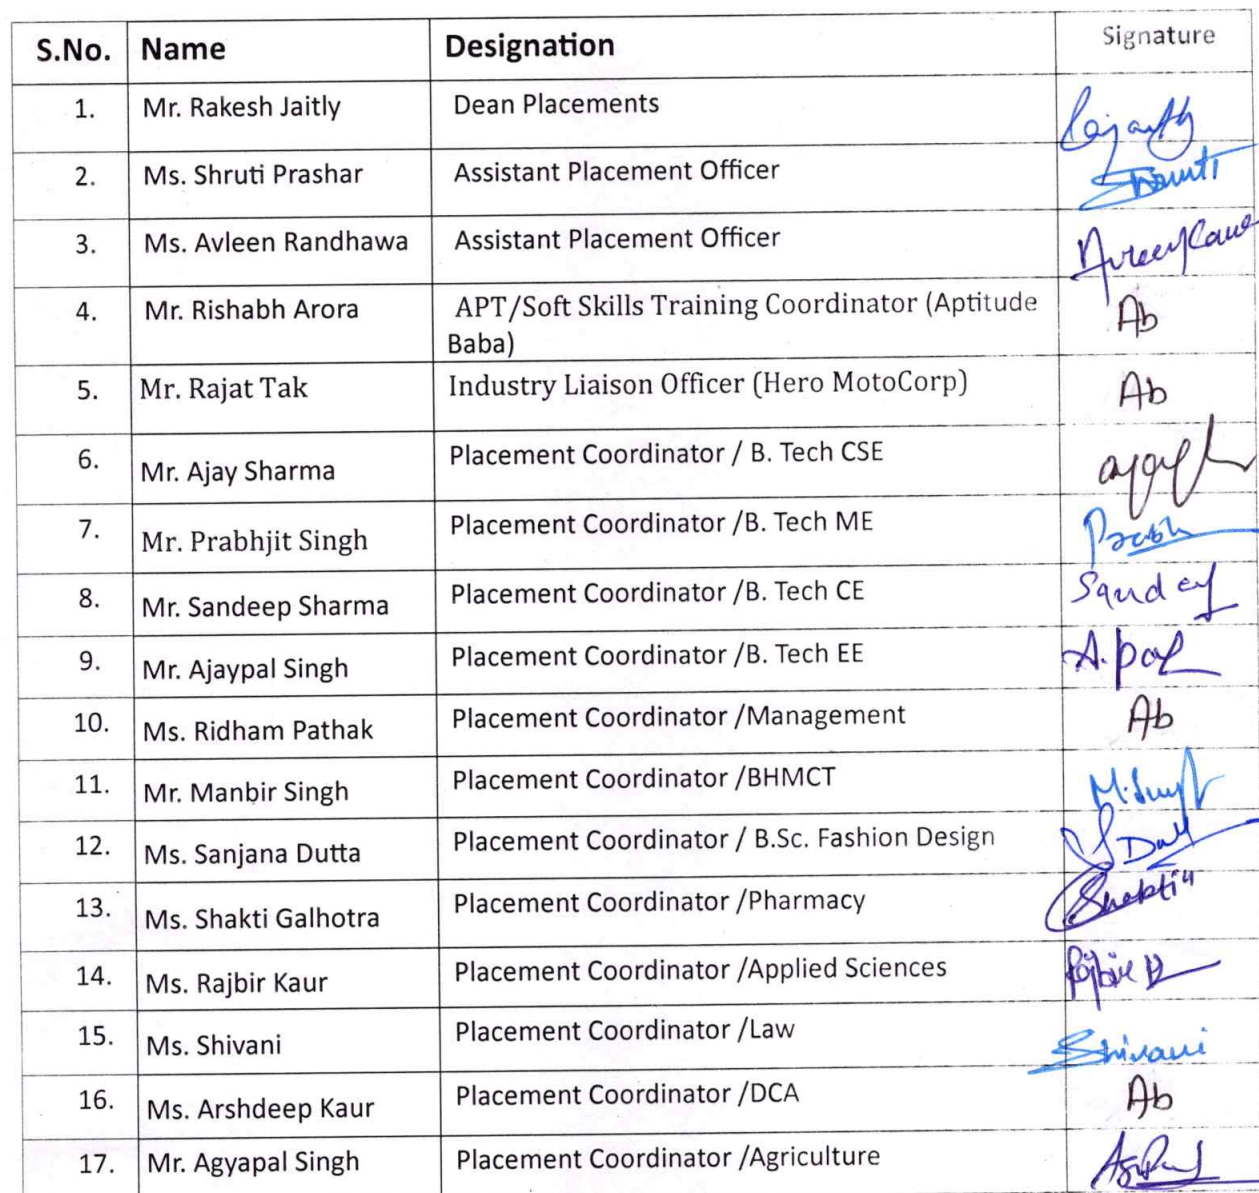 S.No. Name Designation Signature
1. Mr. Rakesh Jaitly Dean Placements
2. Ms. Shruti Prashar Assistant Placement Officer Shruti
3. Ms. Avleen Randhawa Assistant Placement Officer
4. Mr. Rishabh Arora APT/Soft Skills Training Coordinator (Aptitude Ab
Baba)
5. Mr. Rajat Tak Industry Liaison Officer (Hero MotoCorp) Ab
6. Mr. Ajay Sharma Placement Coordinator / B. Tech CSE
7. Mr. Prabhjit Singh Placement Coordinator /B. Tech ME Prabh
8. Mr. Sandeep Sharma Placement Coordinator /B. Tech CE
9. Mr. Ajaypal Singh Placement Coordinator /B. Tech EE A.pal
10. Ms. Ridham Pathak Placement Coordinator /Management Ab
11. Mr. Manbir Singh Placement Coordinator /BHMCT
12. Ms. Sanjana Dutta Placement Coordinator / B.Sc. Fashion Design
13. Ms. Shakti Galhotra Placement Coordinator /Pharmacy Shakti
14. Ms. Rajbir Kaur Placement Coordinator /Applied Sciences
15. Ms. Shivani Placement Coordinator /Law Shivani
16. Ms. Arshdeep Kaur Placement Coordinator /DCA Ab
17. Mr. Agyapal Singh Placement Coordinator /Agriculture